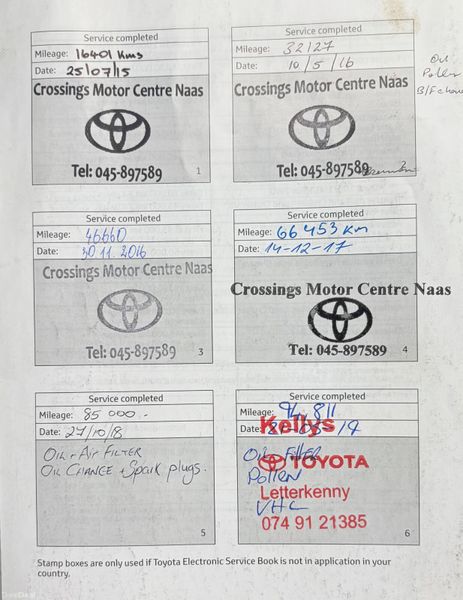 Service completed
Mileage: 16401 Kms
Date: 25/07/15
Crossings Motor Centre Naas
Tel: 045-897589
1
Service completed
Mileage: 32127
Date: 10/5/16
Crossings Motor Centre Naas
Tel: 045-897589
2
Oil
Pollen
Service completed
Mileage: 46660
Date: 30.11.2016
Crossings Motor Centre Naas
Tel: 045-897589
3
Service completed
Mileage: 66 453 KM
Date: 14-12-17
Crossings Motor Centre Naas
Tel: 045-897589
4
Service completed
Mileage: 85 000 -
Date: 27/10/18
OIL - AIR FILTER
OIL CHANGE + Spark plugs.
5
Service completed
Mileage: 94,811
Date:
Kellys
Oil Filter
TOYOTA
Pollen
Letterkenny
VHC
074 91 21385
6
Stamp boxes are only used if Toyota Electronic Service Book is not in application in your
country.